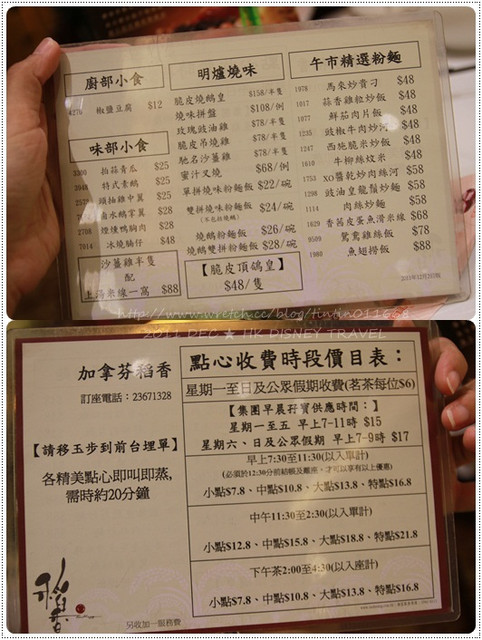 廚部小食
4276 椒鹽豆腐 $12
味部小食
3300 拍蒜青瓜 $25
3048 特式素鵝 $25
頭抽雞中翼 $25
滷水鵝掌翼 $28
煙燻鴨胸肉 $28
7014 冰燒腸仔 $48
沙薑雞半隻
配
上湯米線一窩 $88
明爐燒味
脆皮燒鵝皇 $158/半隻
燒味拼盤 $108/例
玫瑰豉油雞 $78/半隻
脆皮吊燒雞 $78/半隻
馳名沙薑雞 $78/半隻
蜜汁叉燒 $68/例
單拼燒味粉麵飯 $22/碗
雙拼燒味粉麵飯 $24/碗
燒鵝粉麵飯 $26/碗
燒鵝雙拼粉麵飯 $28/碗
【脆皮頂鴿皇】
$48/隻
午市精選粉麵
1978 馬來炒貴刁 $48
1017 蒜香雞粒炒飯 $48
1077 鮮茄肉片飯 $48
1235 豉椒牛肉炒河 $48
1247 西施脆米炒飯 $48
1610 牛柳絲炆米 $48
1753 XO醬乾炒肉絲河 $58
1298 豉油皇龍鬚炒麵 $58
1114 肉絲炒麵 $58
1829 香茜皮蛋魚滑米線 $68
8509 鴛鴦雞絲飯 $78
1980 魚翅撈飯 $88
2011年12月2日版
http://www.wretch.cc/blog/tintin011658
2011 DEC ★ HK DISNEY TRAVEL
加拿芬稻香
訂座電話：23671328
【請移玉步到前台埋單】
各精美點心即叫即蒸,
需時約20分鐘
稻香
另收加一服務費
點心收費時段價目表：
星期一至日及公眾假期收費(茗茶每位$6)
【集團早晨孖寶供應時間：】
星期一至五 早上7-11時 $15
星期六、日及公眾假期 早上7-9時 $17
早上7:30至11:30(以入單計)
(必須於12:30分前結帳及離座，才可以享有以上優惠)
小點$7.8、中點$10.8、大點$13.8、特點$16.8
中午11:30至2:30(以入單計)
小點$12.8、中點$15.8、大點$18.8、特點$21.8
下午茶2:00至4:30(以入座計)
小點$7.8、中點$10.8、大點$13.8、特點$16.8